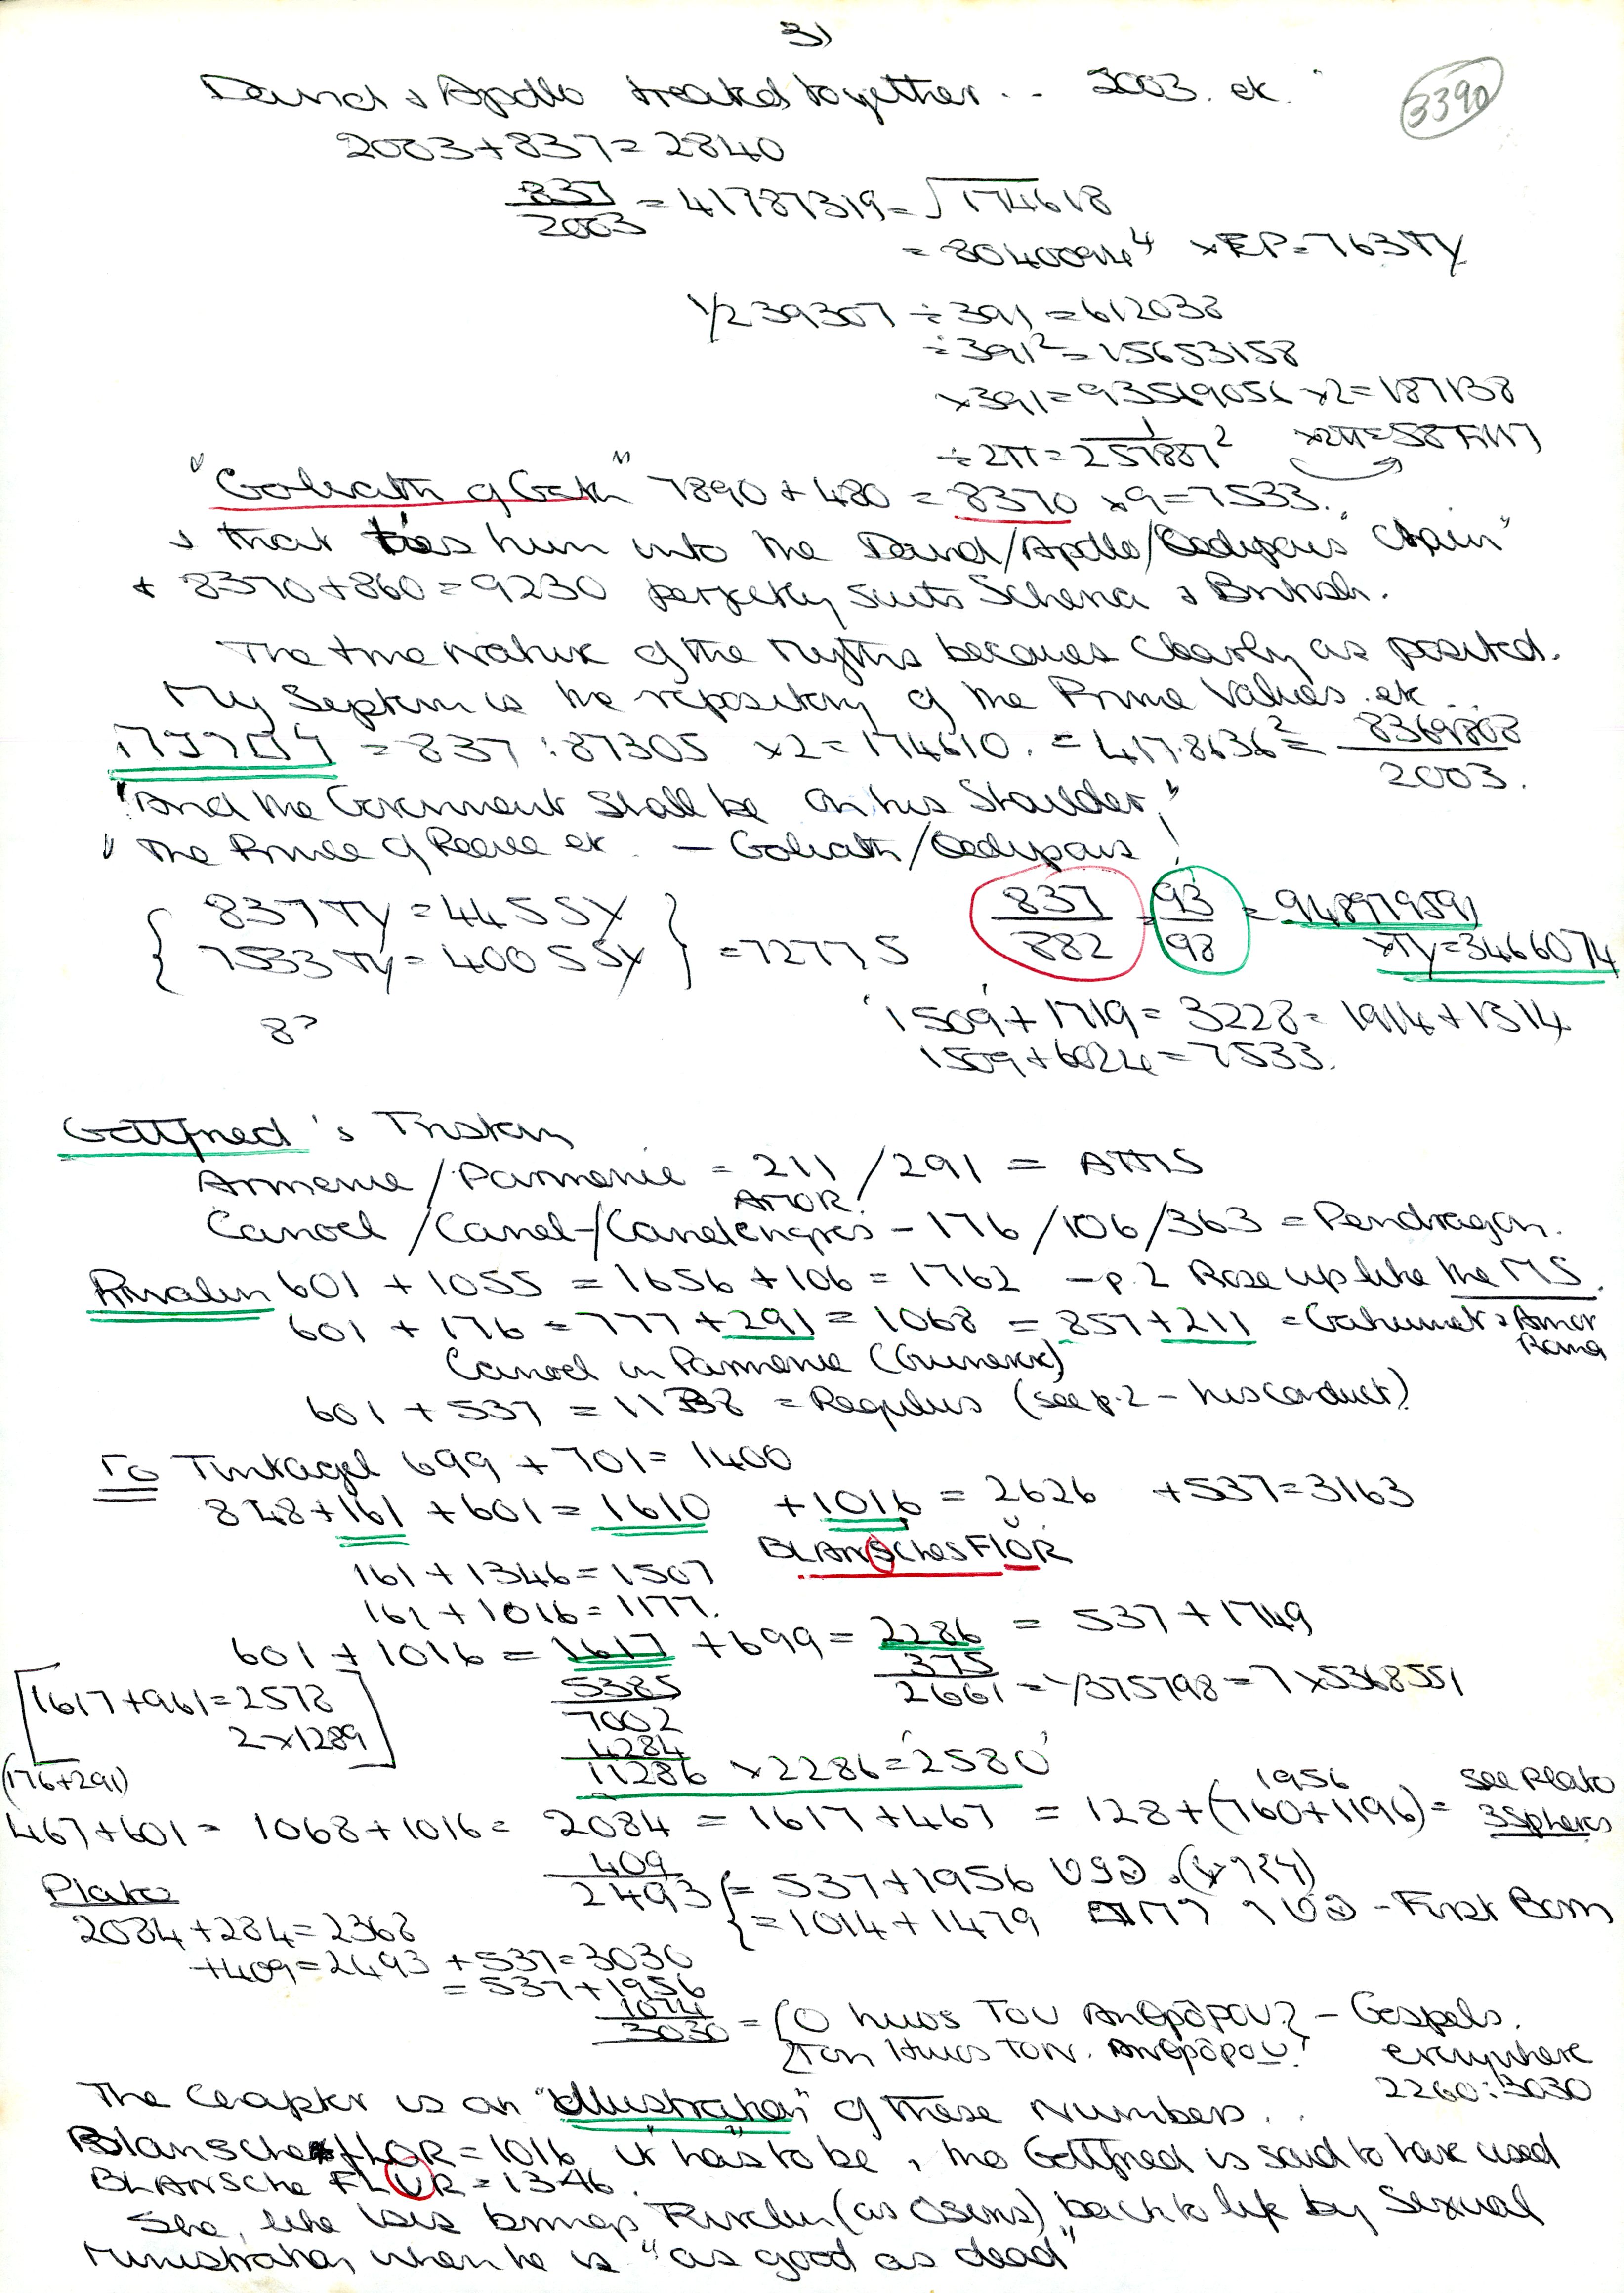 3)
David & Apollo treated together .. 2003. etc.
3390
2003+837=2840
837/2003 = 41787319 = √174618
= 8040094⁴ ×EP=763TY
1/239307 ÷ 391 = 612038
÷391² = 15653158
×391=93569056 ×2=187138
÷2π=
"Goliath of Gath" 7890 + 480 = 8370 ×9=7533.
& that ties him into the David/Apollo/Oedipous "Chain"
+ 8370+860=9230 perfectly suits Schema & British.
The true nature of the Myths becomes clearly as posited.
My System is the repository of the Prime Values. etc ..
= 837 : 87305 ×2=174610. = 417.8636² = 8369808/2003.
"And the Government shall be on his Shoulder,"
"The Prince of Peace etc. — Goliath/Oedipous!
{ 837 TY = 44 SSY
7533 TY = 400 SSY } = 72775
837/882 = 93/98 = 948979591
×TY=3466074
8?
'1509'+1719=3228=1914+1314
1509+6024=7533.
Gottfried's Tristan
Armenie/Parmenie = 211/291 = ATTIS
AMOR!
Canoel/Canel-/Canelengres - 176/106/363 = Pendragon.
Rivalin 601 + 1055 = 1656 + 106 = 1762 - p.2 Rose up like the MS.
601 + 176 = 777 + 291 = 1068 = 857+211 = Gahmuret & Amor
Roma
Canoel in Parmenie
601 + 537 = 1138 = Regulus (see p.2 - his conduct)
To Tintagel 699 + 701 = 1400
848+161 + 601 = 1610 + 1016 = 2626 +537=3163
BLANSchesFlOR
161 + 1346 = 1507
161 + 1016 = 1177.
601 + 1016 = 1617 + 699 = 2286 = 537 + 1749
[1617+961=2578
2×1289]
5385
7002
4284
11286 ×2286='2580'
375
2661 = 1/375798 = 7×5368551
(176+291)
467+601 = 1068+1016 = 2084 = 1617+467 = 128+(760+1196) = see Plato
1956
3 Spheres
409
2493 {= 537+1956
= 1014+1479 - First Born
Plato
2084+284=2368
+409=2493 +537=3030
= 537+1956
1074
3030 = {O huios Tou Anthrôpou} - Gospels.
everywhere
2260:3030
The Chapter is an "illustration" of these Numbers..
BlanscheflOR = 1016 it has to be, tho Gottfried is said to have used
BLANSche FLUR = 1346.
She, like Isis brings Rivalin (as Osiris) back to life by Sexual
Ministration when he is "as good as dead"